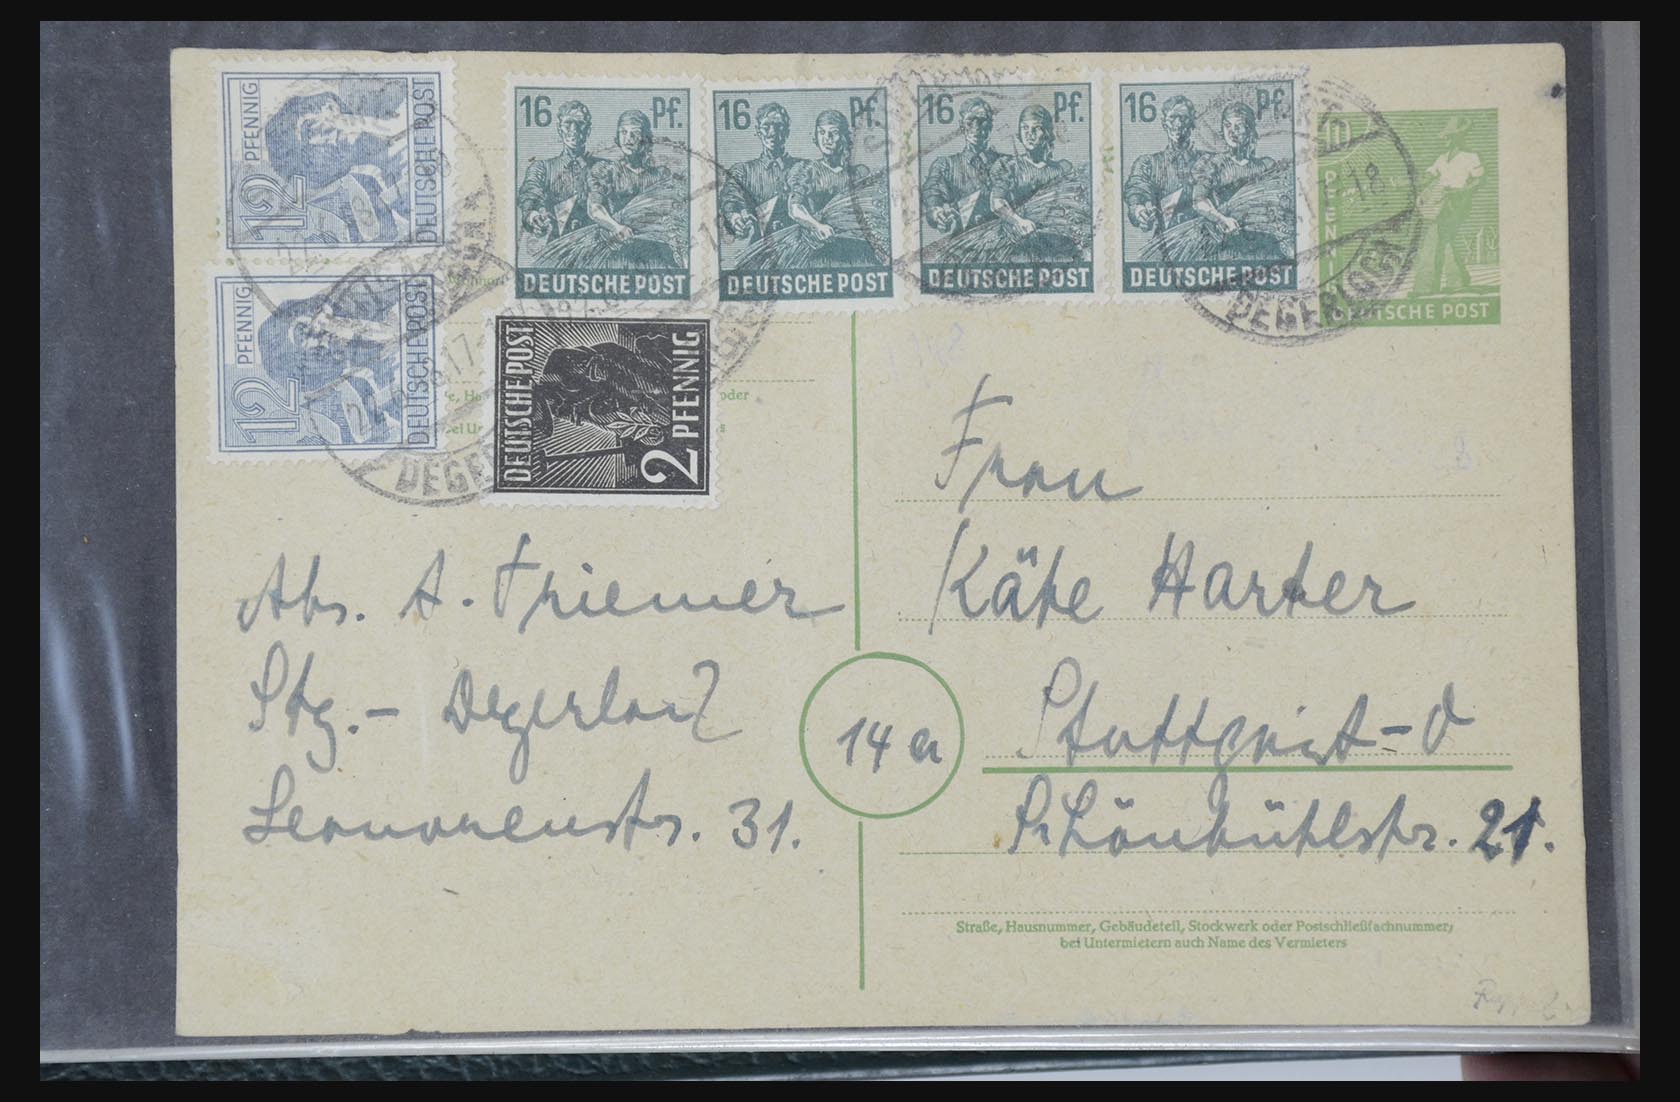 12 PFENNIG DEUTSCHE POST
12 PFENNIG DEUTSCHE POST
16 Pf. DEUTSCHE POST
16 Pf. DEUTSCHE POST
16 Pf. DEUTSCHE POST
16 Pf. DEUTSCHE POST
10 PFENNIG DEUTSCHE POST
DEUTSCHE POST 2 PFENNIG
DEGERLOCH
oder
Abs. A. Triemer
Stg.- Degerloch
Leonorenstr. 31.
14a
Frau
Käte Harter
Stuttgart-O
Schönbühlstr. 21.
Straße, Hausnummer, Gebäudeteil, Stockwerk oder Postschließfachnummer;
bei Untermietern auch Name des Vermieters